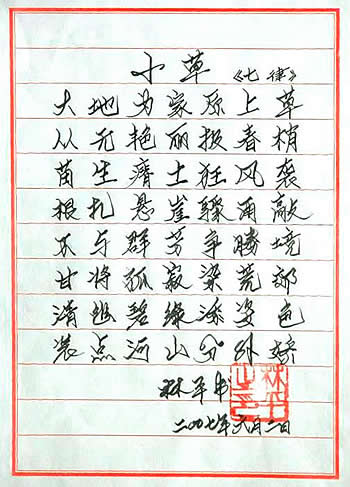 小草 《七律》
大地为家原上草
从无艳丽报春梢
苗生瘠土狂风袭
根扎悬崖骤雨敲
不与群芳争胜境
甘将孤寂染荒郊
清幽碧绿添姿色
装点河山分外娇
林平书
二〇〇七年六月二日